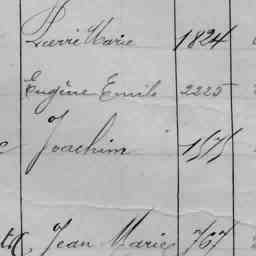 Pierre Marie 1824
Eugène Emile 2225
Joachim 1575
Jean Marie 767